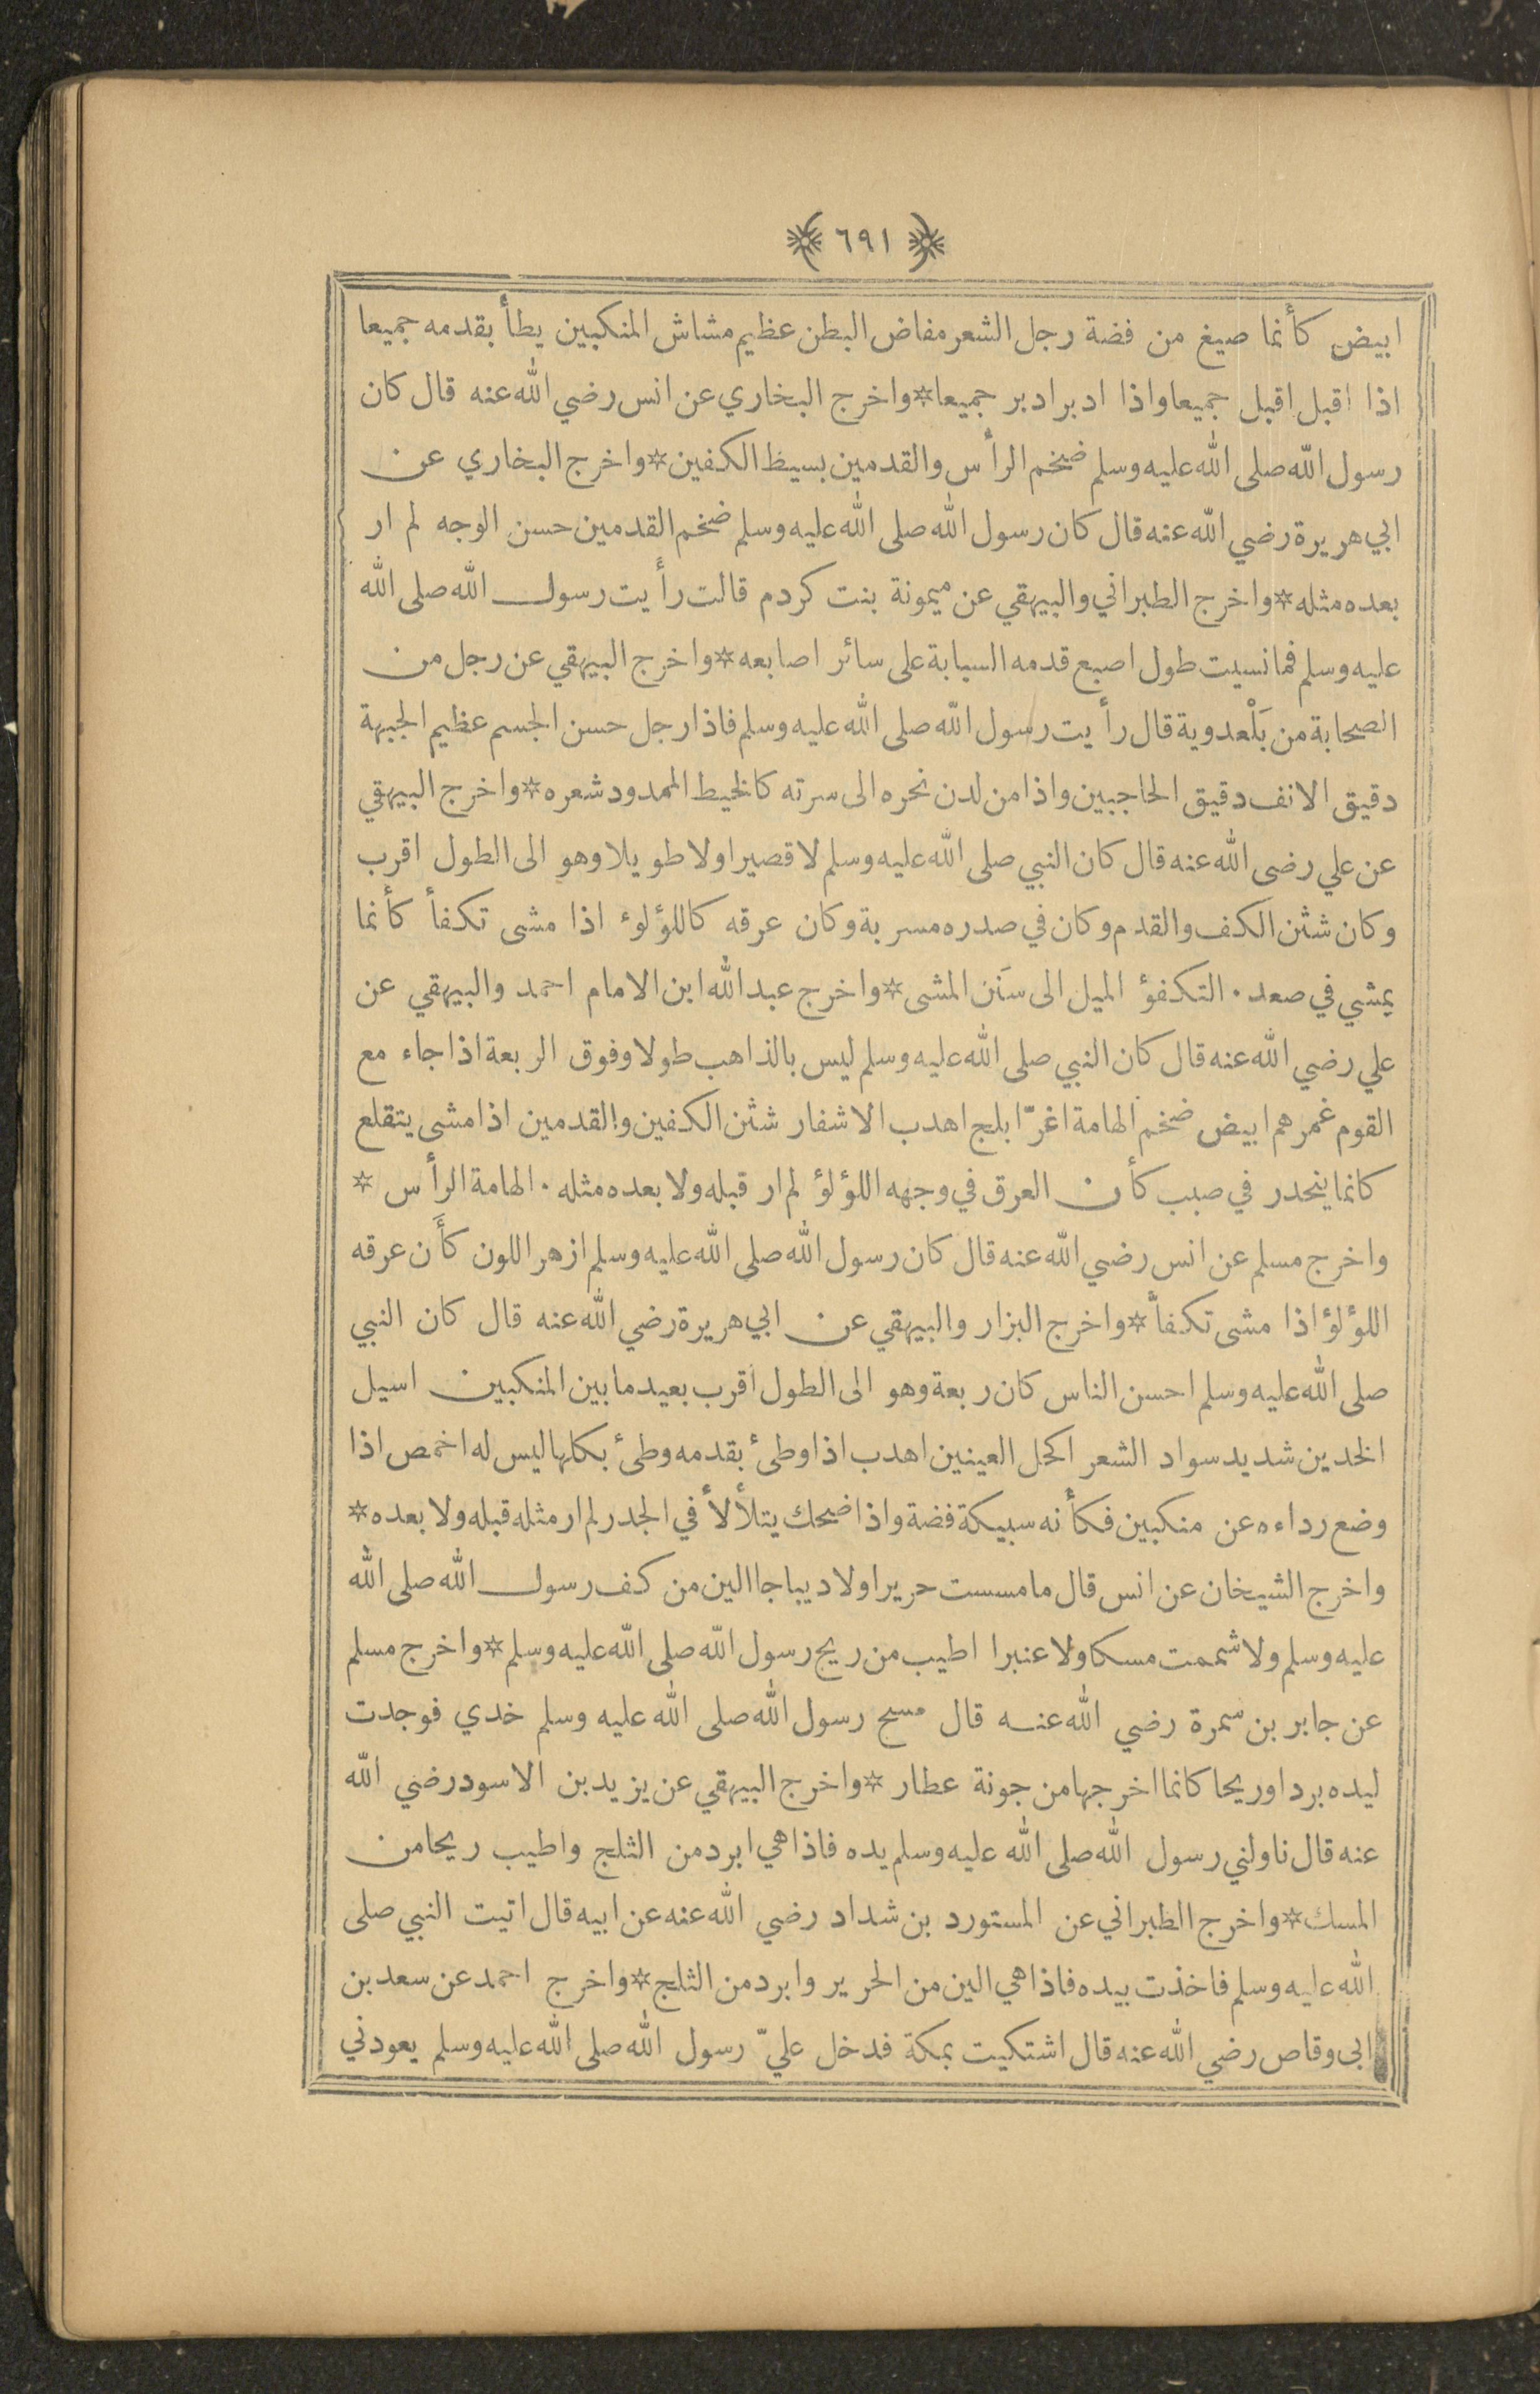 ٦٩١
ابيض كأنما صيغ من فضة رجل الشعر مفاض البطن عظيم مشاش المنكبين يطأ بقدمه جميعا
اذا اقبل اقبل جميعا واذا ادبر ادبر جميعا * واخرج البخاري عن انس رضي الله عنه قال كان
رسول الله صلى الله عليه وسلم ضخم الرأس والقدمين بسيط الكفين * واخرج البخاري عن
ابي هريرة رضي الله عنه قال كان رسول الله صلى الله عليه وسلم ضخم القدمين حسن الوجه لم ار
بعده مثله * واخرج الطبراني والبيهقي عن ميمونة بنت كردم قالت رأيت رسول الله صلى الله
عليه وسلم فما نسيت طول اصبع قدمه السبابة على سائر اصابعه * واخرج البيهقي عن رجل من
الصحابة من بَلْعدوية قال رأيت رسول الله صلى الله عليه وسلم فاذا رجل حسن الجسم عظيم الجبهة
دقيق الانف دقيق الحاجبين واذا من لدن نحره الى سرته كالخيط الممدود شعره * واخرج البيهقي
عن علي رضى الله عنه قال كان النبي صلى الله عليه وسلم لا قصيرا ولا طويلا وهو الى الطول اقرب
وكان شثن الكف والقدم وكان في صدره مسربة وكان عرقه كاللؤلوء اذا مشى تكفأ كأنما
يمشي في صعد . التكفؤ الميل الى سَنَن المشى * واخرج عبد الله ابن الامام احمد والبيهقي عن
علي رضي الله عنه قال كان النبي صلى الله عليه وسلم ليس بالذاهب طولا وفوق الربعة اذا جاء مع
القوم غمرهم ابيض ضخم الهامة اغرّ ابلج اهدب الاشفار شثن الكفين والقدمين اذا مشى يتقلع
كانما ينحدر في صبب كأن العرق في وجهه اللؤلؤ لم ار قبله ولا بعده مثله . الهامة الرأس *
واخرج مسلم عن انس رضي الله عنه قال كان رسول الله صلى الله عليه وسلم ازهر اللون كأَن عرقه
اللؤلؤ اذا مشى تكفأ * واخرج البزار والبيهقي عن ابي هريرة رضي الله عنه قال كان النبي
صلى الله عليه وسلم احسن الناس كان ربعة وهو الى الطول اقرب بعيد ما بين المنكبين اسيل
الخدين شديد سواد الشعر اكحل العينين اهدب اذا وطئ بقدمه وطئ بكلها ليس له اخمص اذا
وضع رداءه عن منكبين فكأنه سبيكة فضة واذا ضحك يتلألأ في الجدر لم ار مثله قبله ولا بعده *
واخرج الشيخان عن انس قال ما مسست حريرا ولا ديباجا الين من كف رسول الله صلى الله
عليه وسلم ولا شممت مسكا ولا عنبرا اطيب من ريح رسول الله صلى الله عليه وسلم * واخرج مسلم
عن جابر بن سمرة رضي الله عنه قال مسح رسول الله صلى الله عليه وسلم خدي فوجدت
ليده بردا وريحا كانما اخرجها من جونة عطار * واخرج البيهقي عن يزيد بن الاسود رضي الله
عنه قال ناولني رسول الله صلى الله عليه وسلم يده فاذا هي ابرد من الثلج واطيب ريحا من
المسك * واخرج الطبراني عن المستورد بن شداد رضي الله عنه عن ابيه قال اتيت النبي صلى
الله عليه وسلم فاخذت بيده فاذا هي الين من الحرير وابرد من الثلج * واخرج احمد عن سعد بن
ابى وقاص رضي الله عنه قال اشتكيت بمكة فدخل عليّ رسول الله صلى الله عليه وسلم يعودني